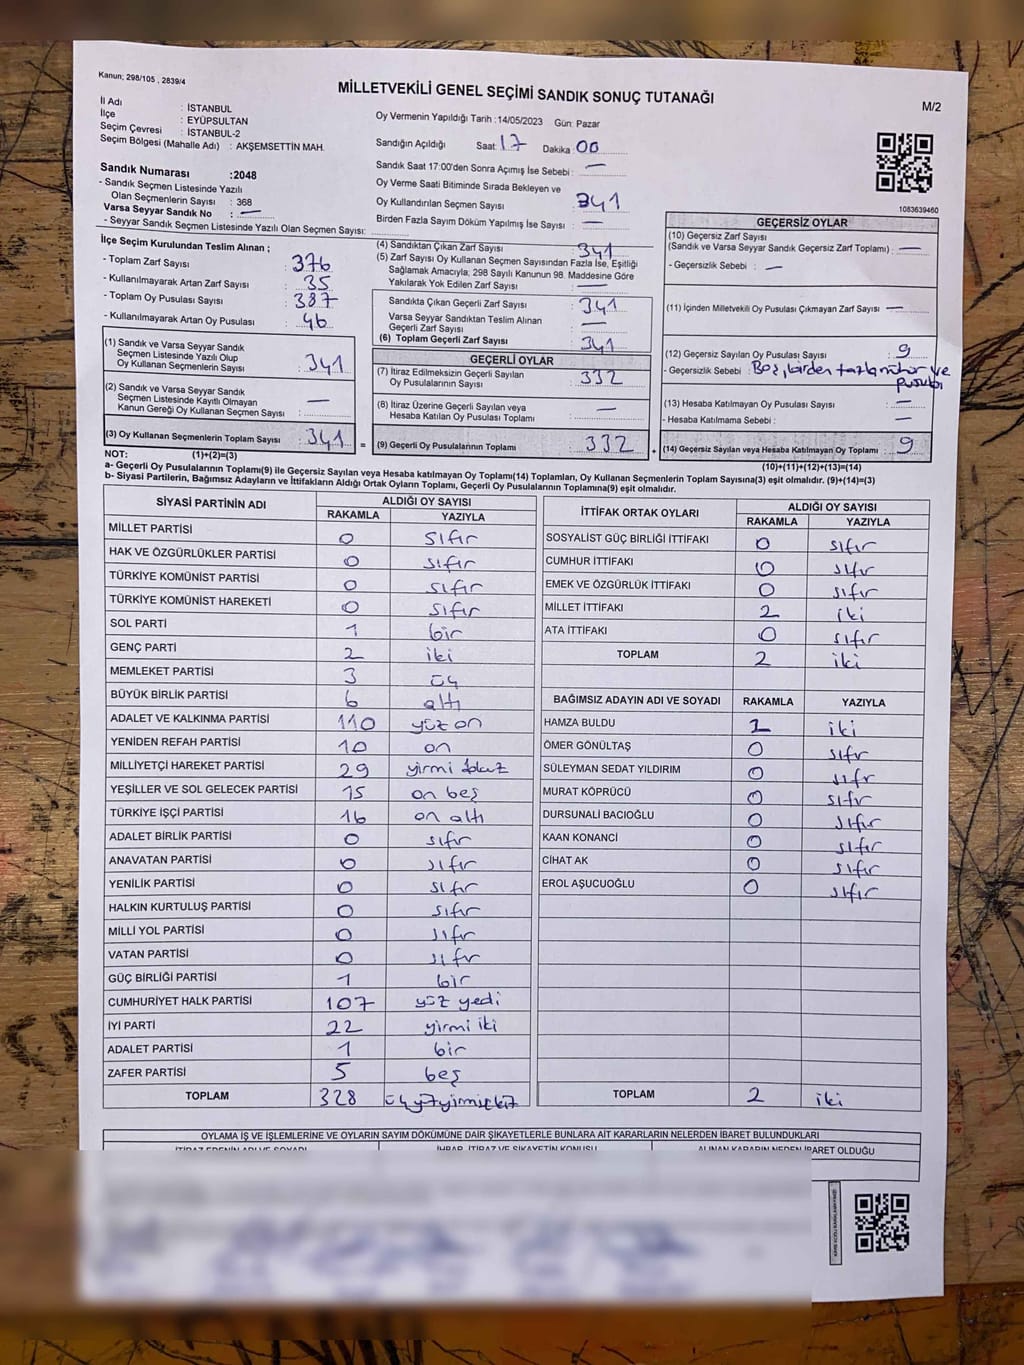 Kanun; 298/105 , 2839/4
MİLLETVEKİLİ GENEL SEÇİMİ SANDIK SONUÇ TUTANAĞI
M/2
İl Adı : İSTANBUL
İlçe : EYÜPSULTAN
Seçim Çevresi : İSTANBUL-2
Seçim Bölgesi (Mahalle Adı) : AKŞEMSETTİN MAH.
Sandık Numarası :2048
- Sandık Seçmen Listesinde Yazılı
Olan Seçmenlerin Sayısı : 368
Varsa Seyyar Sandık No : —
- Seyyar Sandık Seçmen Listesinde Yazılı Olan Seçmen Sayısı:
Oy Vermenin Yapıldığı Tarih : 14/05/2023 Gün: Pazar
Sandığın Açıldığı Saat: 17 Dakika: 00
Sandık Saat 17:00'den Sonra Açımış İse Sebebi : —
Oy Verme Saati Bitiminde Sırada Bekleyen ve
Oy Kullandırılan Seçmen Sayısı : 341
Birden Fazla Sayım Döküm Yapılmış İse Sayısı : —
1083639460
İlçe Seçim Kurulundan Teslim Alınan ;
- Toplam Zarf Sayısı : 376
- Kullanılmayarak Artan Zarf Sayısı : 35
- Toplam Oy Pusulası Sayısı : 387
- Kullanılmayarak Artan Oy Pusulası : 46
(1) Sandık ve Varsa Seyyar Sandık
Seçmen Listesinde Yazılı Olup
Oy Kullanan Seçmenlerin Sayısı : 341
(2) Sandık ve Varsa Seyyar Sandık
Seçmen Listesinde Kayıtlı Olmayan
Kanun Gereği Oy Kullanan Seçmen Sayısı : —
(3) Oy Kullanan Seçmenlerin Toplam Sayısı : 341 =
(4) Sandıktan Çıkan Zarf Sayısı : 341
(5) Zarf Sayısı Oy Kullanan Seçmen Sayısından Fazla İse, Eşitliği
Sağlamak Amacıyla; 298 Sayılı Kanunun 98. Maddesine Göre
Yakılarak Yok Edilen Zarf Sayısı : —
Sandıkta Çıkan Geçerli Zarf Sayısı : 341
Varsa Seyyar Sandıktan Teslim Alınan
Geçerli Zarf Sayısı : —
(6) Toplam Geçerli Zarf Sayısı : 341
GEÇERLİ OYLAR
(7) İtiraz Edilmeksizin Geçerli Sayılan
Oy Pusulalarının Sayısı : 332
(8) İtiraz Üzerine Geçerli Sayılan veya
Hesaba Katılan Oy Pusulası Toplamı : —
(9) Geçerli Oy Pusulalarının Toplamı : 332 +
GEÇERSİZ OYLAR
(10) Geçersiz Zarf Sayısı
(Sandık ve Varsa Seyyar Sandık Geçersiz Zarf Toplamı) : —
- Geçersizlik Sebebi : —
(11) İçinden Milletvekili Oy Pusulası Çıkmayan Zarf Sayısı : —
(12) Geçersiz Sayılan Oy Pusulası Sayısı : 9
- Geçersizlik Sebebi : ve
pusula
(13) Hesaba Katılmayan Oy Pusulası Sayısı : —
- Hesaba Katmama Sebebi : —
(14) Geçersiz Sayılan veya Hesaba Katılmayan Oy Toplamı : 9
NOT: (1)+(2)=(3)
(10)+(11)+(12)+(13)=(14)
a- Geçerli Oy Pusulalarının Toplamı(9) ile Geçersiz Sayılan veya Hesaba katılmayan Oy Toplamı(14) Toplamları, Oy Kullanan Seçmenlerin Toplam Sayısına(3) eşit olmalıdır. (9)+(14)=(3)
b- Siyasi Partilerin, Bağımsız Adayların ve İttifakların Aldığı Ortak Oyların Toplamı, Geçerli Oy Pusulalarının Toplamına(9) eşit olmalıdır.
SİYASİ PARTİNİN ADI ALDIĞI OY SAYISI
RAKAMLA YAZIYLA
MİLLET PARTİSİ 0 sıfır
HAK VE ÖZGÜRLÜKLER PARTİSİ 0 sıfır
TÜRKİYE KOMÜNİST PARTİSİ 0 sıfır
TÜRKİYE KOMÜNİST HAREKETİ 0 sıfır
SOL PARTİ 1 bir
GENÇ PARTİ 2 iki
MEMLEKET PARTİSİ 3 üç
BÜYÜK BİRLİK PARTİSİ 6 altı
ADALET VE KALKINMA PARTİSİ 110 yüz on
YENİDEN REFAH PARTİSİ 10 on
MİLLİYETÇİ HAREKET PARTİSİ 29 yirmi dokuz
YEŞİLLER VE SOL GELECEK PARTİSİ 15 on beş
TÜRKİYE İŞÇİ PARTİSİ 16 on altı
ADALET BİRLİK PARTİSİ 0 sıfır
ANAVATAN PARTİSİ 0 sıfır
YENİLİK PARTİSİ 0 sıfır
HALKIN KURTULUŞ PARTİSİ 0 sıfır
MİLLİ YOL PARTİSİ 0 sıfır
VATAN PARTİSİ 0 sıfır
GÜÇ BİRLİĞİ PARTİSİ 1 bir
CUMHURİYET HALK PARTİSİ 107 yüz yedi
İYİ PARTİ 22 yirmi iki
ADALET PARTİSİ 1 bir
ZAFER PARTİSİ 5 beş
TOPLAM 328 üçyüzyirmisekiz
İTTİFAK ORTAK OYLARI ALDIĞI OY SAYISI
RAKAMLA YAZIYLA
SOSYALİST GÜÇ BİRLİĞİ İTTİFAKI 0 sıfır
CUMHUR İTTİFAKI 0 sıfır
EMEK VE ÖZGÜRLÜK İTTİFAKI 0 sıfır
MİLLET İTTİFAKI 2 iki
ATA İTTİFAKI 0 sıfır
TOPLAM 2 iki
BAĞIMSIZ ADAYIN ADI VE SOYADI RAKAMLA YAZIYLA
HAMZA BULDU 2 iki
ÖMER GÖNÜLTAŞ 0 sıfır
SÜLEYMAN SEDAT YILDIRIM 0 sıfır
MURAT KÖPRÜCÜ 0 sıfır
DURSUNALİ BACIOĞLU 0 sıfır
KAAN KONANCİ 0 sıfır
CİHAT AK 0 sıfır
EROL AŞUCUOĞLU 0 sıfır
TOPLAM 2 iki
OYLAMA İŞ VE İŞLEMLERİNE VE OYLARIN SAYIM DÖKÜMÜNE DAİR ŞİKAYETLERLE BUNLARA AİT KARARLARIN NELERDEN İBARET BULUNDUKLARI
İTİRAZ EDENİN ADI VE SOYADI İHBAR, İTİRAZ VE ŞİKAYETİN KONUSU ALINAN KARARIN NEDEN İBARET OLDUĞU